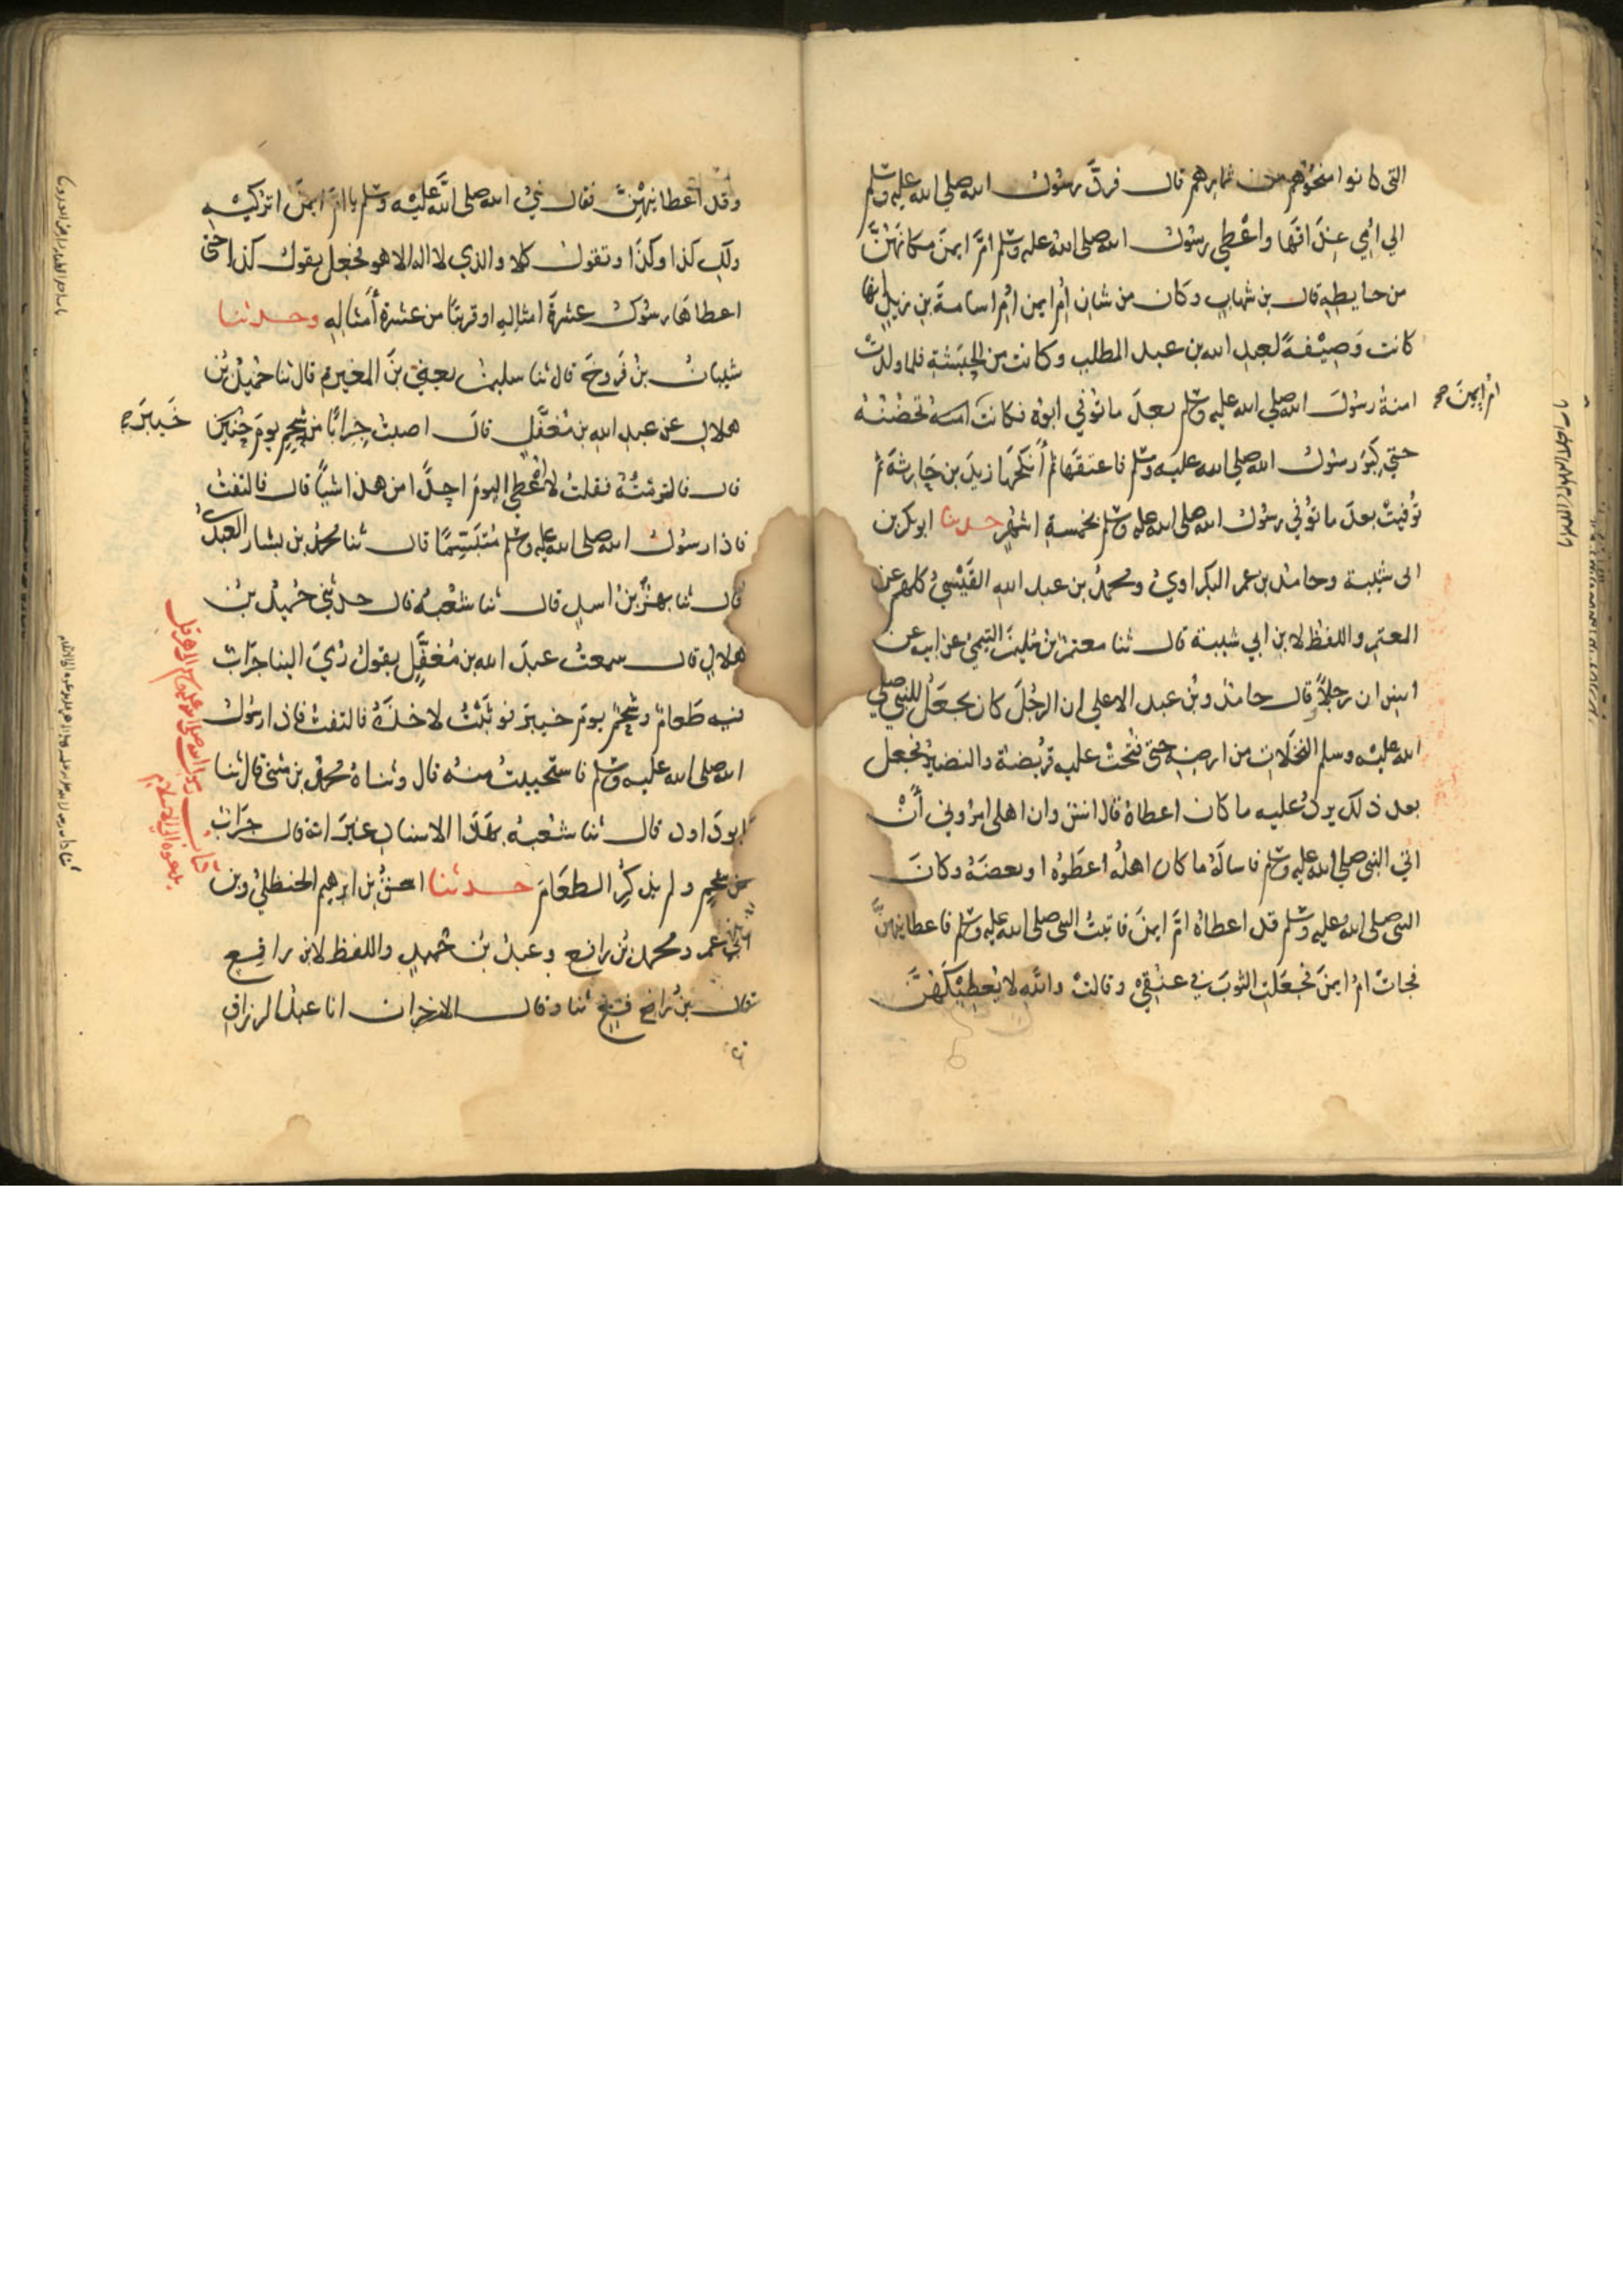 التي كانوا منحوهم من ثمارهم قال فردَّ رسول الله صلى الله عليه وسلم
الي امي عِذَاقَها واعْطي رسُول الله صلى الله عليه وسلم امَّ ايمنَ مكانَهُنَّ
من حايطِهِ قال بن شهابٍ وكان من شان اُمّ ايمن امّ اسامة بن زيدٍ انها
كانت وَصِيْفةً لعبدِ الله بن عبد المطلب وكانت من الحبَشَةِ فلما ولدتْ
امنةُ رسُولَ الله صلي الله عليه وسلم بعدَ ما توُفي ابوُه فكانت تحْضُنُهُ
امُ ايمنَ صح
حتي كَبِرَ رسُول الله صلي الله عليه وسلم فاعتقَها ثم أَنكحَها زيدَ بن حَارِثَةَ ثم
توُفيتْ بعدَ ما توُفي رسُول الله صلى الله عليه وسلم بخمسةِ اشهُرٍ حدثنا ابو بكر بن
ابي شيبة وحامدُ بن عمر البكراويُ ومحمدُ بن عبد الله القَيْسيُ كلهم عن
المعتمرِ واللفظُ لابن ابي شيبة قال ثنا معتمرُ بنُ سُليمنَ التيميُ عن ابيه عن
انسٍ ان رجلاً وقال حامدُ وبنُ عبد الاعلي ان الرجُلَ كان يجعَلُ للنبي صلي
الله عليْه وسلم النخَلاتِ من ارضِهِ حتى فُتحَتْ عليه قُريْضةُ والنضيرُ فجعل
بعد ذلك يردُ عليه ما كان اعطاهُ قال انسٌ وان اهلي امرُوني أَنْ
اتي النبي صلي الله عليه وسلم فاسالَهُ ما كان اهلُه اعطَوْهُ او بعضَهُ وكانَ
النبي صلى الله عليه وسلم قد اعطاهُ امَّ ايمنَ فاتيتُ النبي صلى الله عليه وسلم فاعطانيهنَّ
فجاتْ امُ ايمنَ فجعَلتِ الثوبَ في عنُقِيْ وقالتْ والله لا يُعطِيْكَهُنَّ
وقد اَعطانيهُنَّ فقال نبيُ الله صلى الله عليْه وسلم يا امَّ ايمنَ اترُكيْهِ
ولكِ كذا وكذَا وتقولُ كلا والذي لا اله الا هو فجعل يقولُ كذا حتى
اعطاهَا رسُول عشرةَ امثالِهِ او قريبًا من عشرةِ أَمثالِهِ وحدثنا
شيبانُ بنُ فَرُّوخَ قال ثنا سليمنُ يعني بنَ المغيرةِ قال ثنا حُميدُ بنُ
هلالٍ عن عبدِ الله بن مُغفَّلٍ قال اصبتُ جِرابًا من شحْمٍ يومَ حُنَينَ
خَيبرَ صح
قال فالتزمتُهُ فقلتُ لا اعْطي اليومَ احدًا من هذا شيئًا قال فالتفتُ
فاذا رسُولُ الله صلى الله عليه وسلم مُتبَسِّمًا قال ثنا محمدُ بن بشار العبديُ
قال ثنا بهزُ بنُ اسدٍ قال ثنا شعْبةُ قال حدثني حُميدُ بنُ
هلالٍ قال سمعتُ عبدَ الله بن مُغفَّلٍ يقولُ رُميَ الينا جرَابٌ
فيه طَعامٌ وشحْمٌ يومَ خيبرَ فوثَبْتُ لاخذَهُ فالتفتُ فاذا رسُولُ
الله صلى الله عليه وسلم فاستحييتُ منهُ قال وثناهُ محمدُ بن مثنى قال ثنا
ابو داود قال ثنا شُعْبةُ بهَذَا الاسنادِ غيرَ انه قال جرَابٌ
من شحْمٍ ولم يذكُرِ الطعَامَ حدثنا اسحقُ بن ابرهيم الحنظليُ وبن
ابي عمر ومحمدُ بنُ رافعٍ وعبدُ بنُ حُميدٍ واللفظ لابن رافعٍ
قال بنُ رافع ثنا وقال الاخران انا عبدُ الرزاقِ